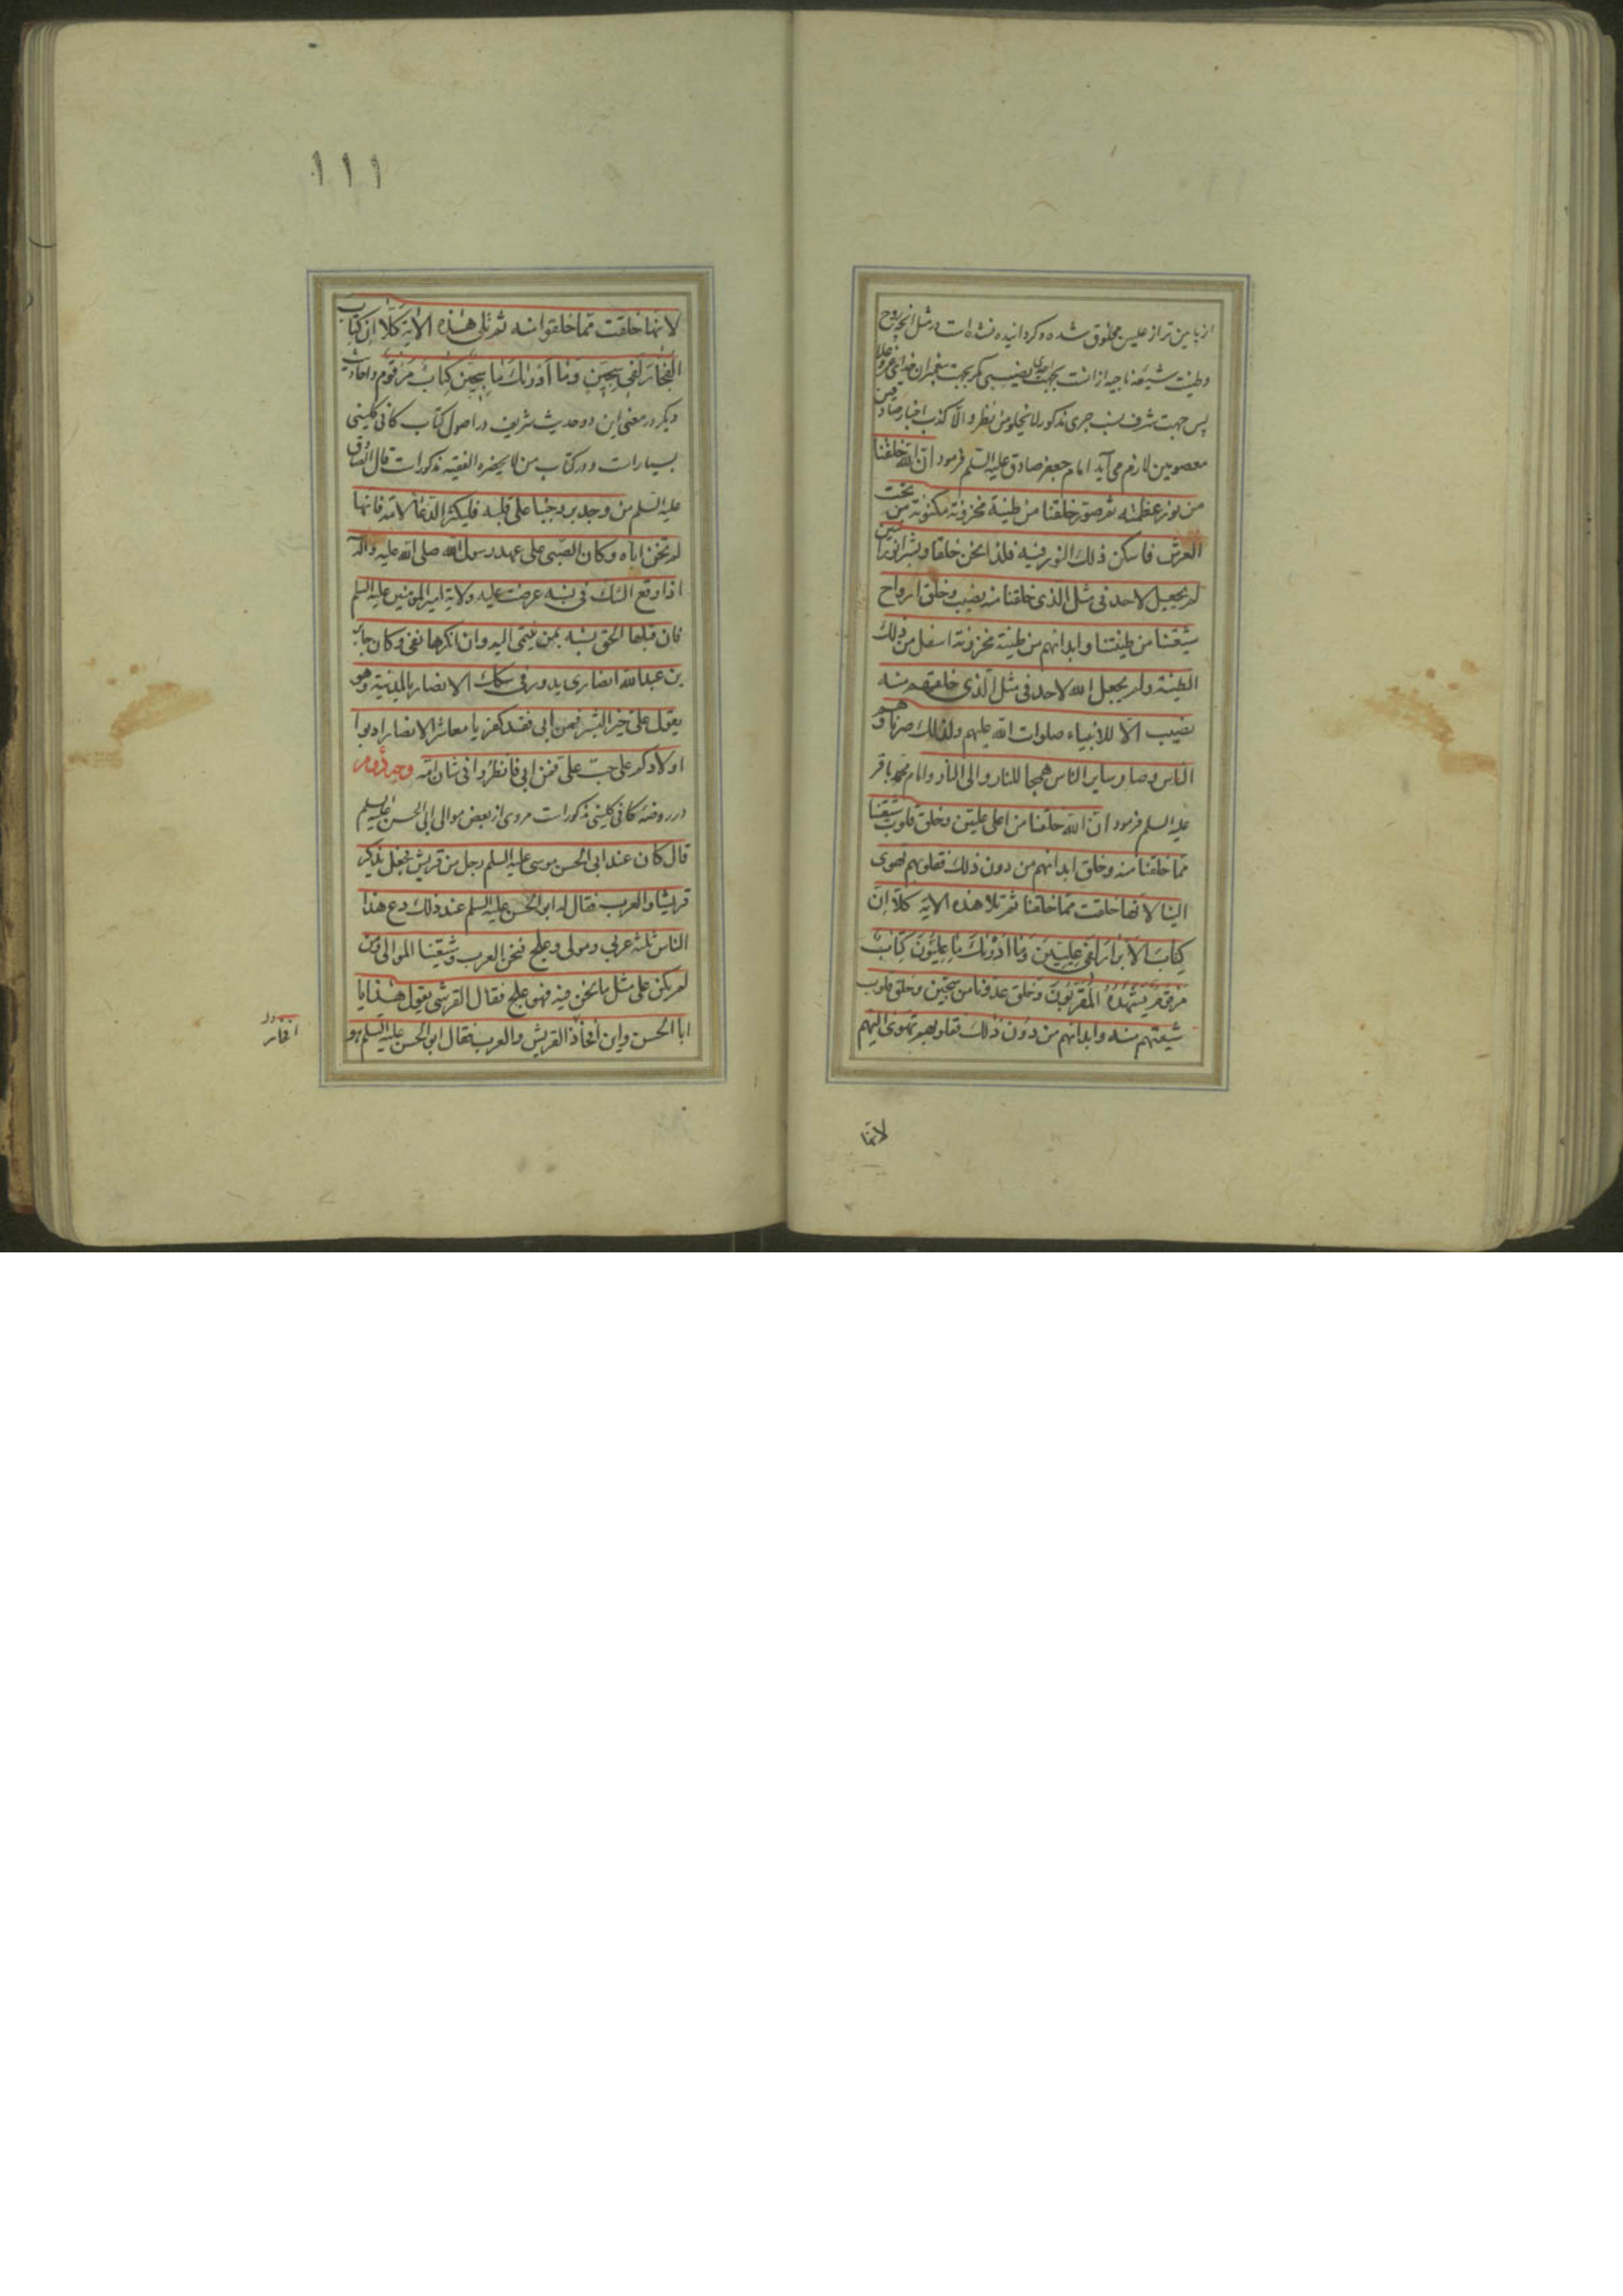 از پایین تر از علیین مخلوق شده و کردانیده نشده است در مثل آنچه روح
وطینت شیعه ناجیه از انست بجهت احدی نصیبی مکر بجهت پیغمبران خدای عز و جل
پس جهت شرف نسب جری مذکور لا یخلو من نظر والا کذب اخبار صادقین
معصومین لازم می آید امام جعفر صادق علیه السلم فرمود ان الله خلقنا
من نور عظمته ثم صور خلقنا من طینة مخزونة مکنونة من تحت
العرش فاسکن ذلك النور فیه فلذا نحن خلقا وبشرا نورانیین
لم یجعل لاحد فی مثل الذی خلقنا منه نصیب وخلق ارواح
شیعتنا من طینتنا وابدانهم من طینة مخزونة اسفل من ذلك
الطینة ولم یجعل الله لاحد فی مثل الذی خلقهم منه
نصیب الا للانبیاء صلوات الله علیهم ولذلك صرنا وهم
الناس وصار سایر الناس همجا للنار والی النار وامام محمد باقر
علیه السلم فرمود ان الله خلقنا من اعلی علیین وخلق قلوب شیعتنا
مما خلقنا منه وخلق ابدانهم من دون ذلك فقلوبهم تهوی
الینا لانها خلقت مما خلقنا ثم تلا هذه الایة کلا ان
کتاب الابرار لفی علیین وما ادریك ما علیون کتاب
مرقوم یشهده المقربون وخلق عدونا من سجین وخلق قلوب
شیعتهم منه وابدانهم من دون ذلك فقلوبهم تهوی الیهم
لانها
١١١
لانها خلقت مما خلقوا منه ثم تلی هذه الایة کلا ان کتاب
الفجار لفی سجین وما ادریك ما سجین کتاب مرقوم واحادیث
دیکر در معنی این دو حدیث شریف در اصول کتاب کافی کلینی
بسیار است ودر کتاب من لا یحضره الفقیه مذکور است قال الصادق
علیه السلم من وجد برد حبنا علی قلبه فلیکثر الدعاء لامه فانها
لم تخن اباه وکان الصبی علی عهد رسول الله صلی الله علیه واله
اذا وقع الشك فی نسبه عرضت علیه ولایة امیر المومنین علیه السلم
فان قبلها الحق نسبه بمن ینتمی الیه وان انکرها نفی وکان جابر
بن عبد الله انصاری یدور فی سکك الانصار بالمدینة وهو
یقول علی خیر البشر فمن ابی فقد کفر یا معاشر الانصار ادبوا
اولادکم علی حب علی فمن ابی فانظروا فی شان امه وجه دوم
در روضهٔ کافی کلینی مذکور است مروی از بعض موالی ابی الحسن علیه السلم
قال کان عند ابی الحسن موسی علیه السلم رجل من قریش فجعل یذکر
قریشا والعرب فقال له ابو الحسن علیه السلم عند ذلك دع هذا
الناس ثلثة عربی ومولی وعلج فنحن العرب وشیعتنا الموالی ومن
لم یکن علی مثل ما نحن فیه فهو علج فقال القرشی یقول هذا یا
ابا الحسن واین افخاذ القریش والعرب فقال ابو الحسن علیه السلم هو